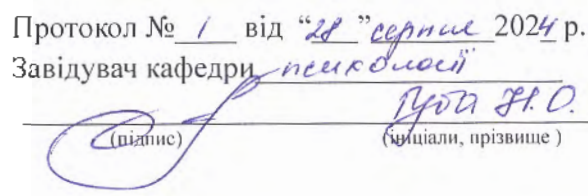 Протокол № 1 від “28” серпня 2024 р.
Завідувач кафедри психології
Губа Н.О.
(підпис) (ініціали, прізвище )